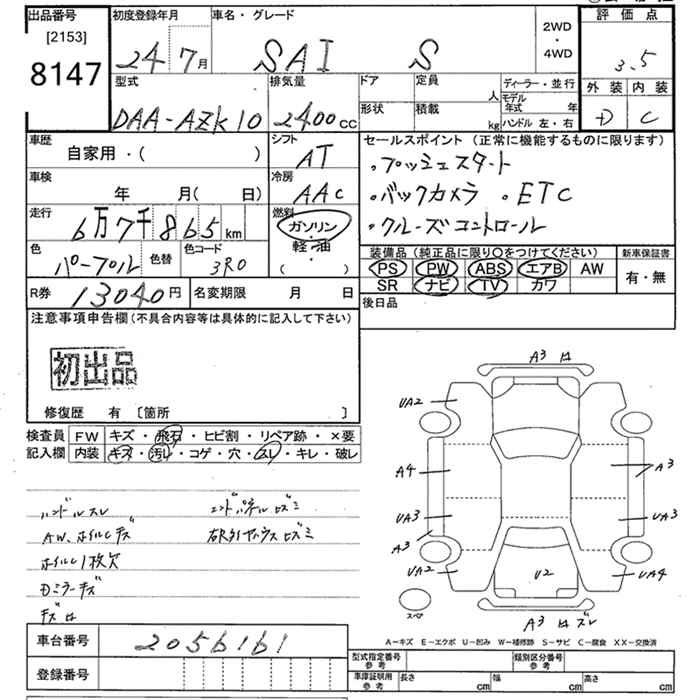 出品番号 初度登録年月 車名・グレード 評価点
[2153]
8147
24 7月 SAI S 2WD・4WD 3.5
外装 内装
D C
型式 排気量 ドア 定員 人 ディーラー・並行
DAA-AZK10 2400cc 形状 積載 kg モデル年式 年
ハンドル 左・右
車歴 シフト セールスポイント (正常に機能するものに限ります)
自家用・( ) AT ・プッシュスタート
車検 冷房
年 月( 日) AAC ・バックカメラ ・ETC
走行 燃料
6万7千865km ガソリン・軽・油・( ) ・クルーズコントロール
色 色替 色コード 装備品 (純正品に限り○をつけてください) 新車保証書
パープル 3R0 PS PW ABS エアB AW 有・無
SR ナビ TV カワ
R券 13040円 名変期限 月 日 後日品
注意事項申告欄(不具合内容等は具体的に記入して下さい)
初出品
修復歴 有 [箇所 ]
検査員 FW キズ・飛石・ヒビ割・リペア跡・×要
記入欄 内装 キズ・汚レ・コゲ・穴・スレ・キレ・破レ
ハンドルスレ エンドパネルヒズミ
AW、ホイルCキズ 右Rインナーハウスヒズミ
ホイルC1枚欠
ドミラーキズ
キズ ロ
A3 ロ
UA2
A4 A3
UA3 UA3
A3
UA2 U2 UA4
スペア A3 ロ ズレ
A-キズ E-エクボ U-凹み W-補修跡 S-サビ C-腐食 XX-交換済
車台番号 2056161
登録番号
型式指定番号 参考 類別区分番号 参考
車庫証明用 参考 長さ cm 幅 cm 高さ cm